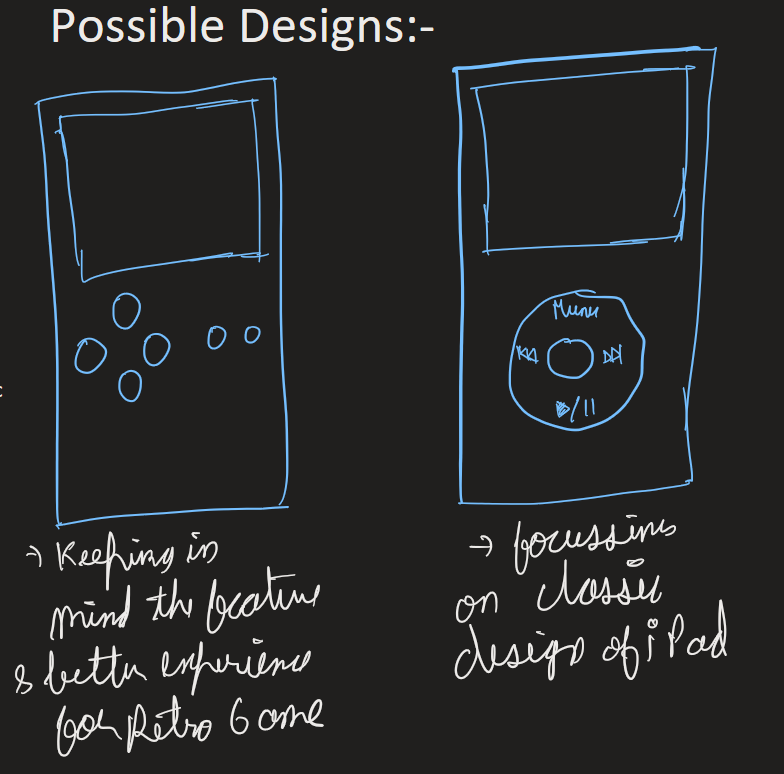 Possible Designs:-
Menu
▶/||
→ Keeping in
mind the feature
& better experience
for Retro Game
→ focussing
on classic
design of iPad